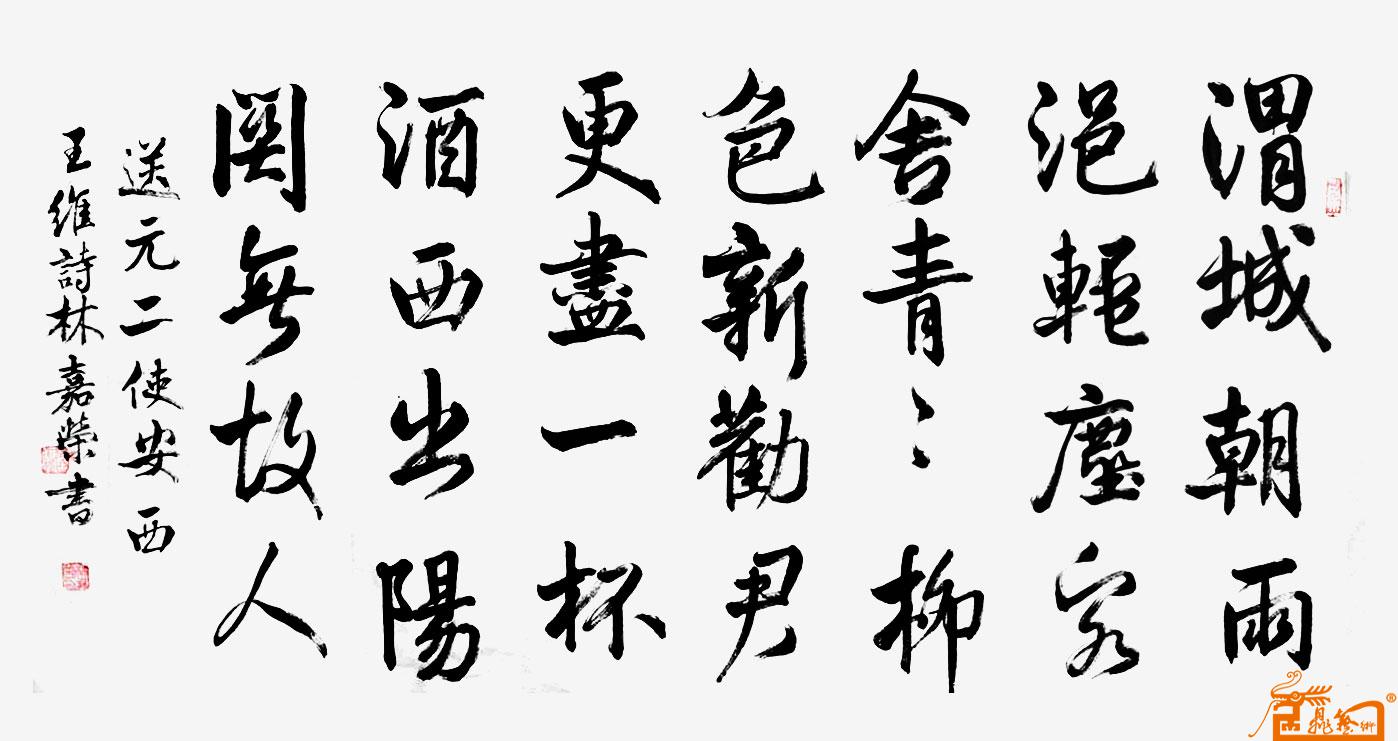 渭城朝雨
浥輕塵客
舍青〻柳
色新勸君
更盡一杯
酒西出陽
関無故人
送元二使安西
王維詩林嘉榮書